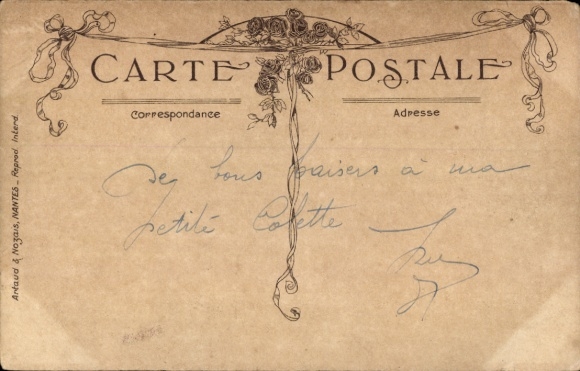 CARTE POSTALE
Correspondance
Adresse
De bons baisers à ma
petite Colette
Artaud & Nozais, NANTES _ Reprod. interd.